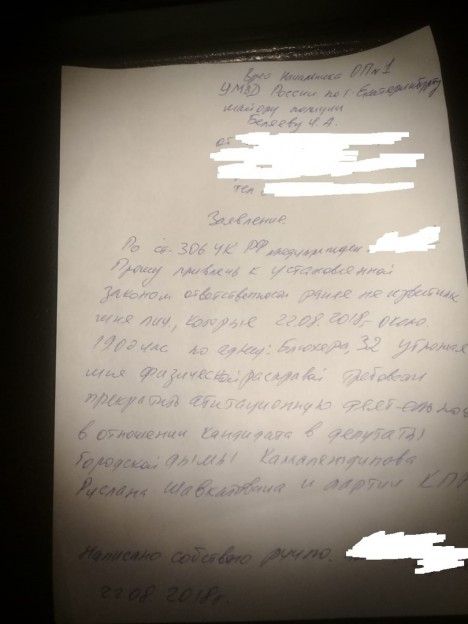 Врио начальника ОП №1
УМВД России по г. Екатеринбургу
майору полиции
Беляеву А.А.
от
тел
Заявление.
По ст. 306 УК РФ предупрежден
Прошу привлечь к установленной
законом ответственности ранее не известных
мне лиц, которые 22.08.2018 около
1900 час по адресу: Блюхера, 32 угрожая
мне физической расправой требовали
прекратить агитационную деят-ельность
в отношении кандидата в депутаты
Городской думы Камалетдинова
Руслана Шавкатовича и партии
Написано собственоручно.
22.08.2018г.